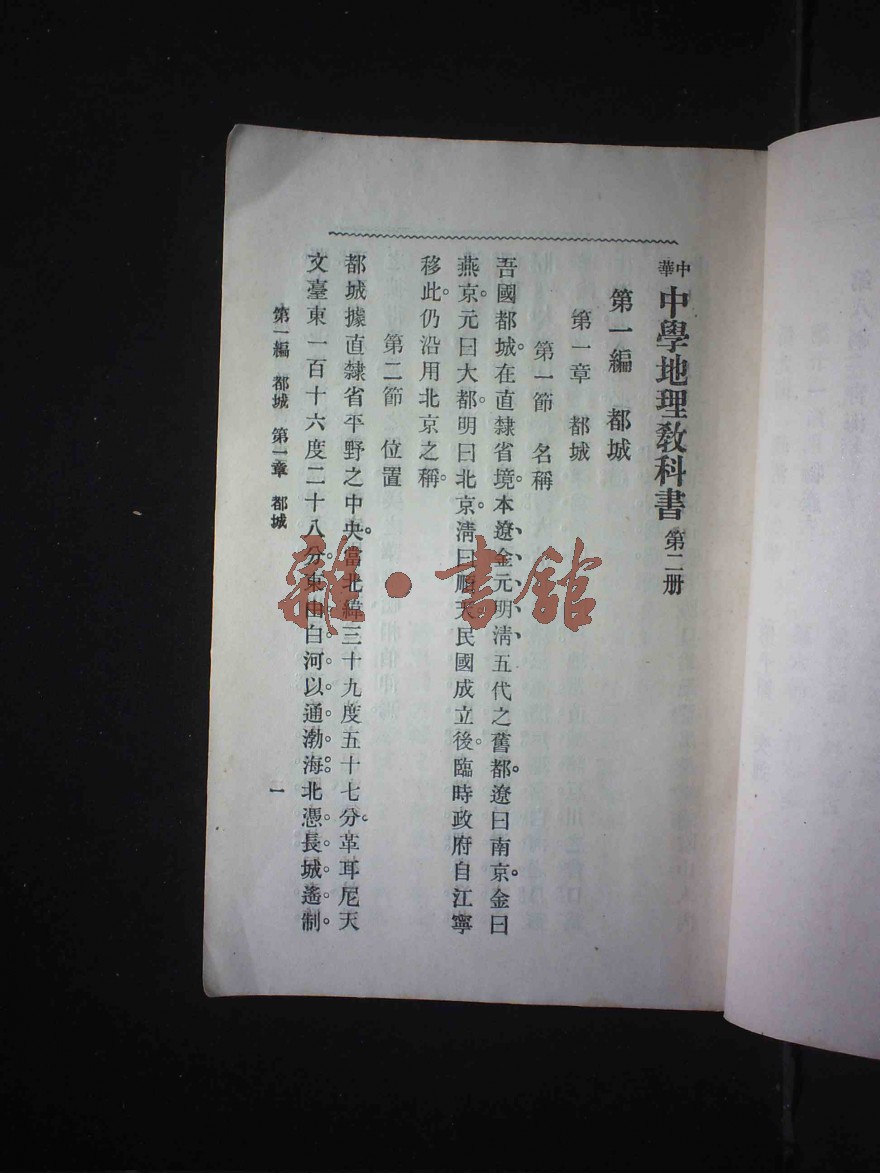 中華 中學地理敎科書 第二册
第一編 都城
第一章 都城
第一節 名稱
吾國都城。在直隸省境。本遼、金、元、明、淸、五代之舊都。遼曰南京。金曰
燕京。元曰大都。明曰北京。淸曰順天。民國成立後。臨時政府自江寧
移此。仍沿用北京之稱。
第二節 位置
都城據直隸省平野之中央。當北緯三十九度五十七分。革耳尼天
文臺東一百十六度二十八分。東由白河以通渤海。北憑長城。遙制
第一編 都城 第一章 都城
一
雜·書館